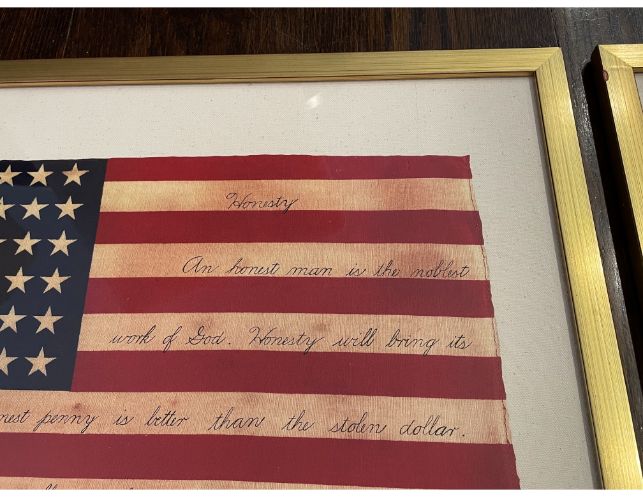 Honesty
An honest man is the noblest
work of God. Honesty will bring its
penny is better than the stolen dollar.